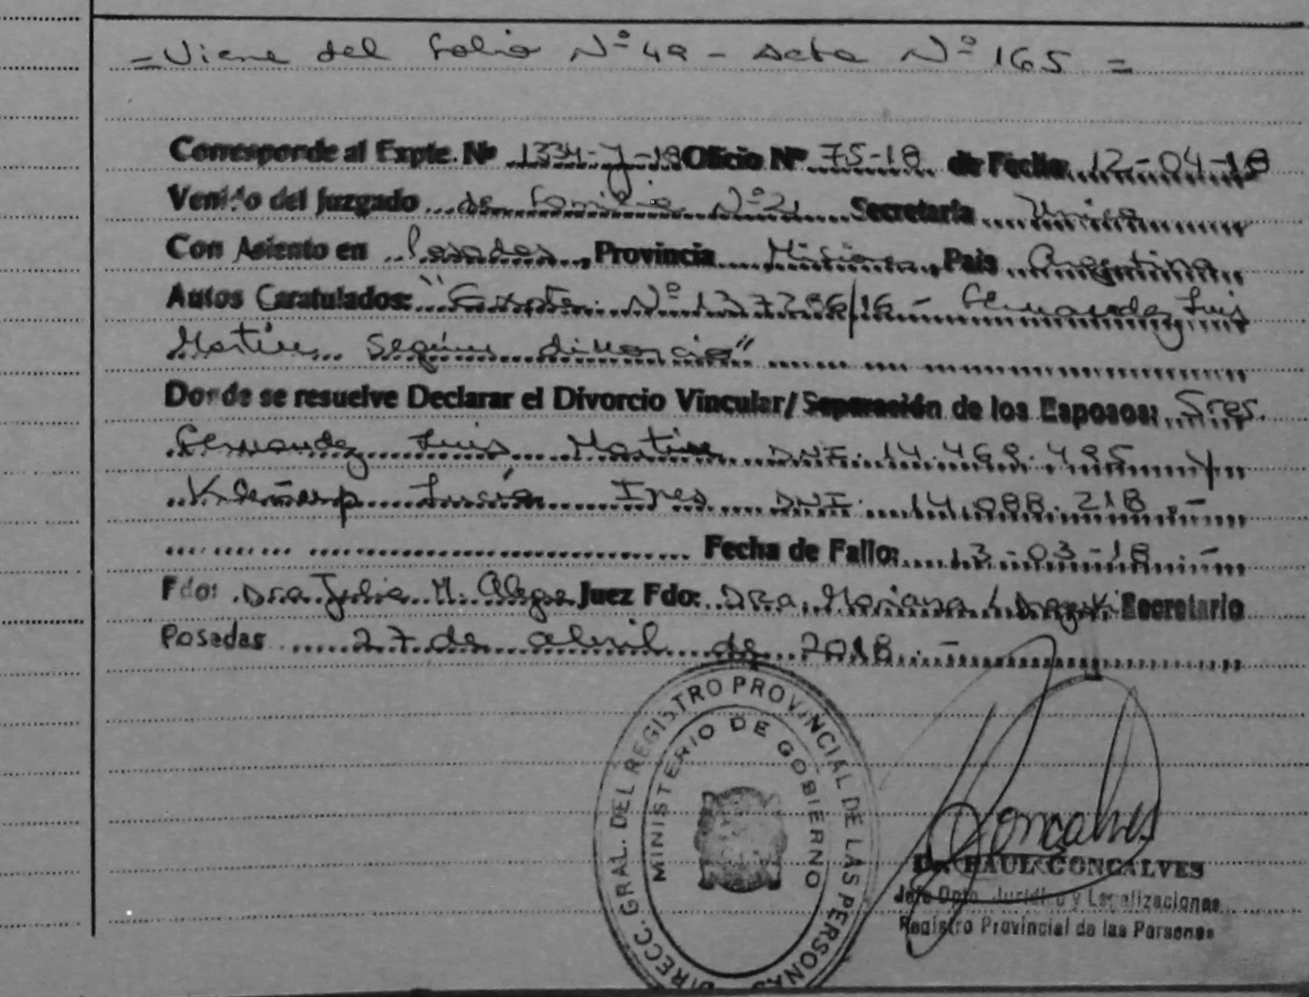 = Viene del folio Nº 49 - Acta Nº 165 =
Corresponde al Expte. Nº 1334-J-18 Oficio Nº 75-18 de Fecha: 12-04-18
Venido del Juzgado de Familia Nº 2 Secretaría Unica
Con Asiento en Posadas, Provincia Misiones, País Argentina
Autos Caratulados: "Expte. Nº 137286/16 - Fernandez Luis
Martin Según divorcio"
Donde se resuelve Declarar el Divorcio Vincular/Separación de los Esposos: Sres.
Fernandez Luis Martin DNI. 14.469.495 y
Lucía Ines DNI. 14.088.218.-
Fecha de Fallo: 13-03-18.-
Fdo: Dra Julia M. Alegre Juez Fdo: Dra. Mariana Secretario
Posadas 27 de abril de 2018.-
DIRECC. GRAL. DEL REGISTRO PROVINCIAL DE LAS PERSONAS
MINISTERIO DE GOBIERNO
Goncalves
Dr. RAUL GONCALVES
Jefe Dpto. Jurídico y Legalizaciones
Registro Provincial de las Personas